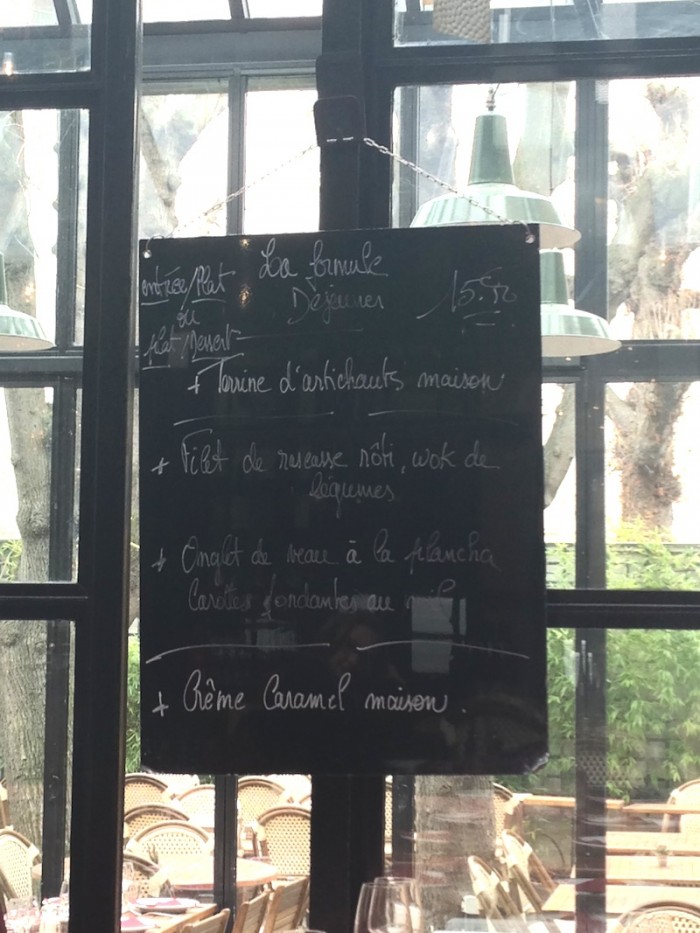 La formule
Déjeuner
entrée/Plat
ou
plat/Dessert
+ Terrine d'artichauts maison
+ Filet de rascasse rôti, wok de
légumes
+ Onglet de veau à la plancha
Carottes fondantes au miel
+ Crème Caramel maison.